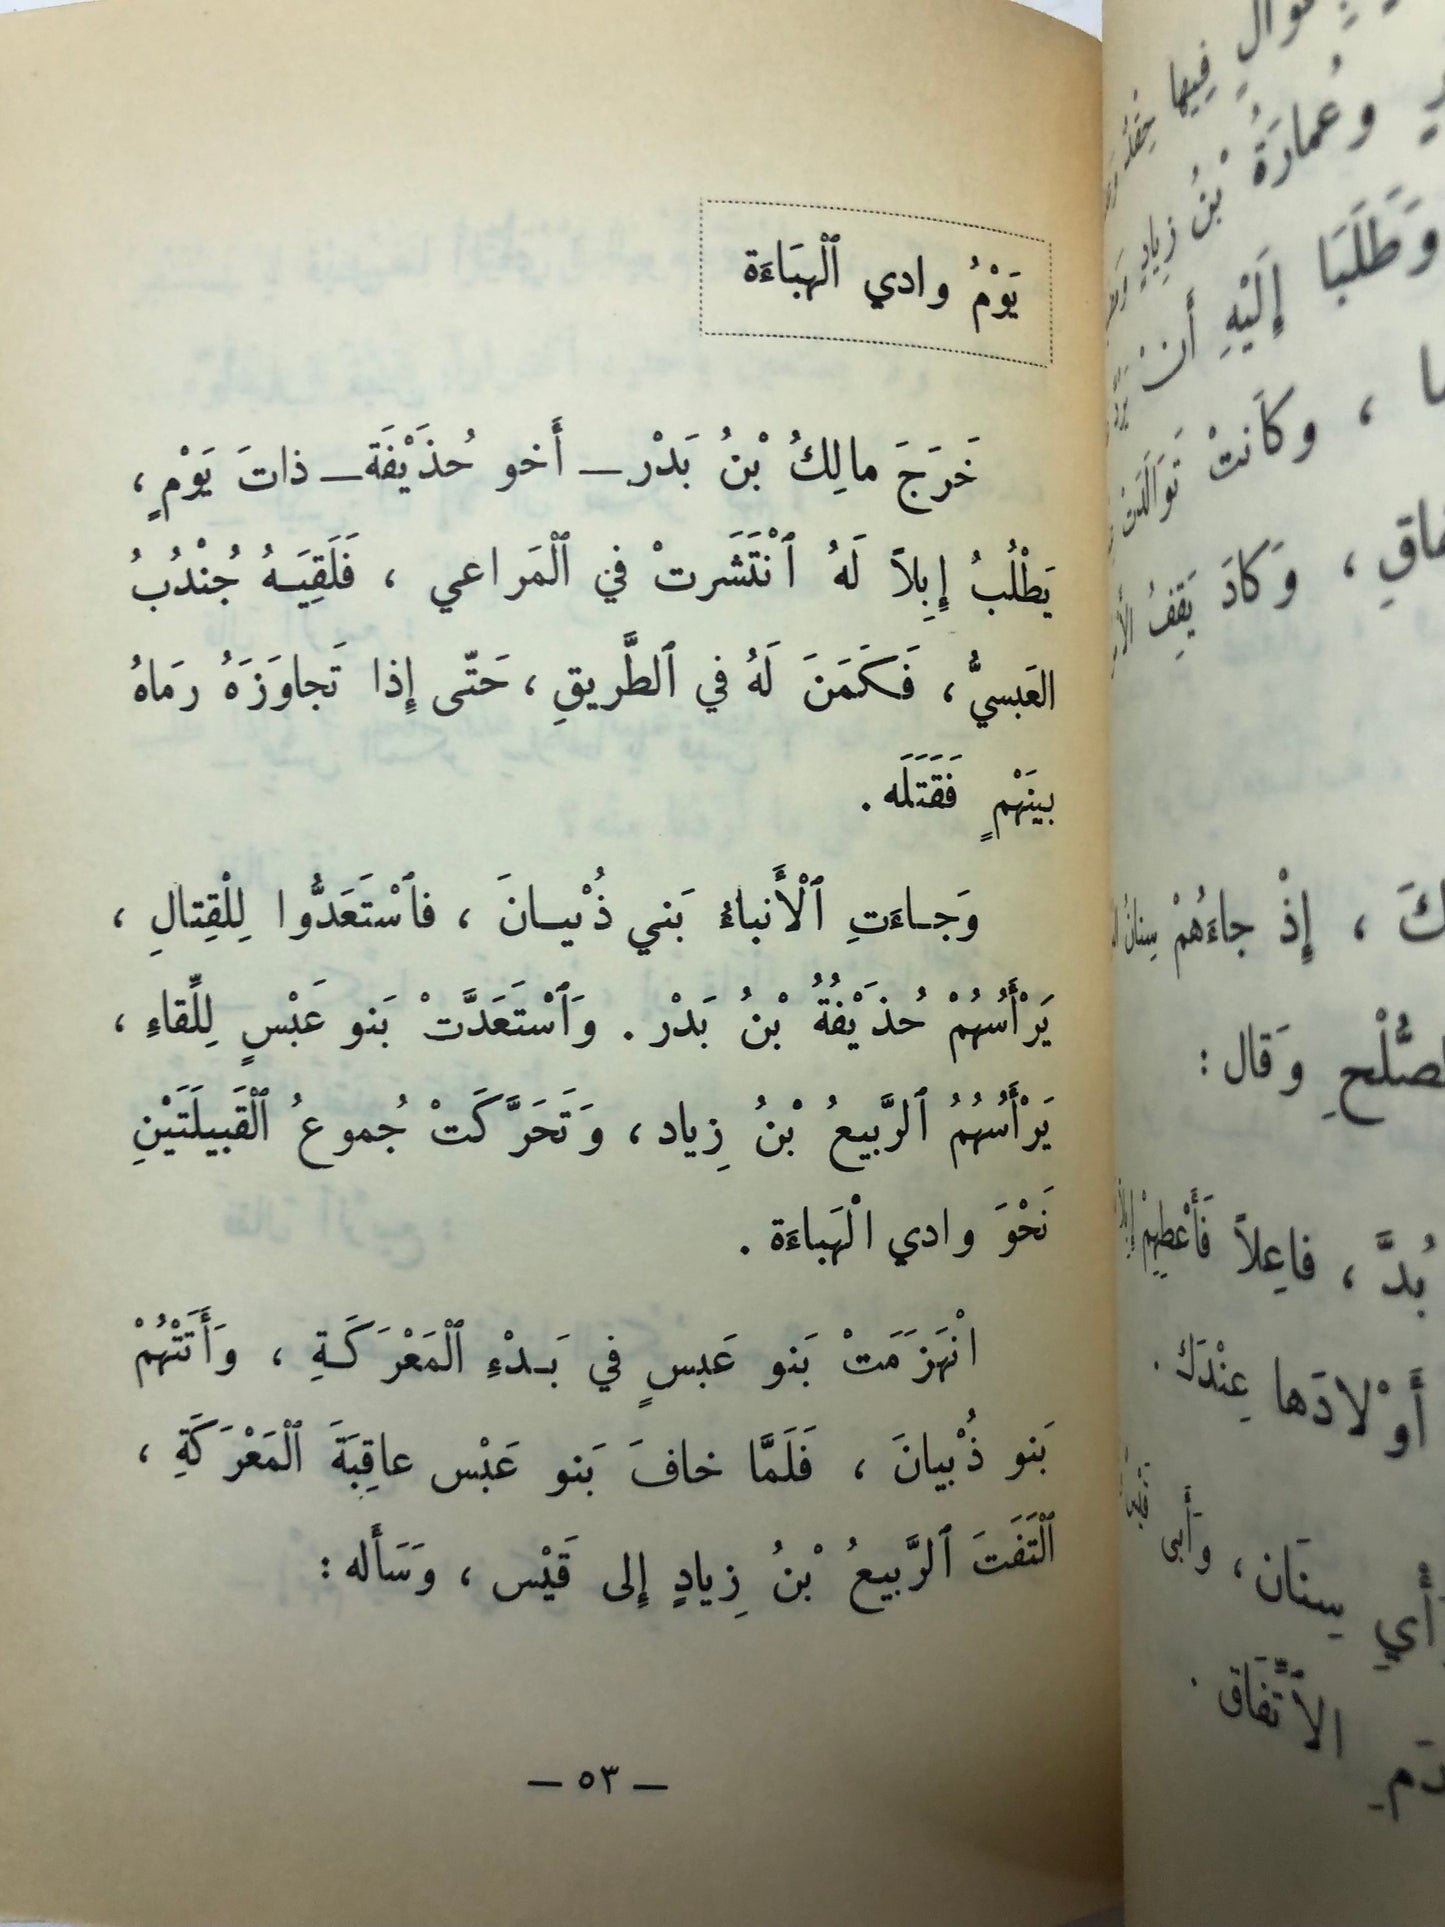 يَوْمُ وادي ٱلْهَبَاءَة
خَرَجَ مالِكُ بْنُ بَدْر ــ أَخو حُذَيْفَة ــ ذاتَ يَوْمٍ ،
يَطْلُبُ إِبِلاً لَهُ ٱنْتَشَرتْ في ٱلْمَراعي ، فَلَقِيَـهُ جُنْدُبُ
العَبسيُّ ، فَكَمَنَ لَهُ في ٱلطَّريقِ ، حَتّى إِذا تَجاوَزَهُ رمَاهُ
بينَهْمٍ فَقَتَلَه .
وَجـاءَتِ ٱلْأَنباءُ بَني ذُبْيـانَ ، فٱسْتَعَدُّوا لِلْقِتالِ ،
يَرْأَسُهُمْ حُذَيْفُةُ بْنُ بَدْر . وَٱسْتَعَدَّتْ بَنو عَبْسٍ لِلِّقاءِ ،
يَرْأَسُهُمُ ٱلرَّبيعُ بْنُ زِياد ، وَتَحَرَّكَتْ جُموعُ ٱلْقَبيلَتَيْنِ
نَحْوَ وادي الْهَباءَة .
انْهَزَمَتْ بَنو عَبسٍ في بَـدْءِ ٱلْمَعْرَكَـةِ ، وَأَتَتْهُمْ
بَنو ذُبْيانَ ، فَلَمَّا خافَ بَنو عَبْس عاقِبَةَ ٱلْمَعْرَكَةِ ،
ٱلْتَفَتَ ٱلرَّبيعُ بْنُ زِيادٍ إِلى قَيْس ، وَسَأَله :
ــ ٥٣ ــ
فِيها
وعُمارَةُ بْنُ زِيادٍ
وَطَلَبَا إِلَيْهِ أَنْ
، وكانتْ تَوَالَدَتْ
، وَكادَ يَقِفُ
، إِذْ جاءَهُمْ سِنانُ
وَقال :
بُدَّ ، فاعِلاً فَأَعْطِهِمْ
أَوْلادَها عِنْدَك .
سِنَان ، وَأَبى
الاتَّفَاق .